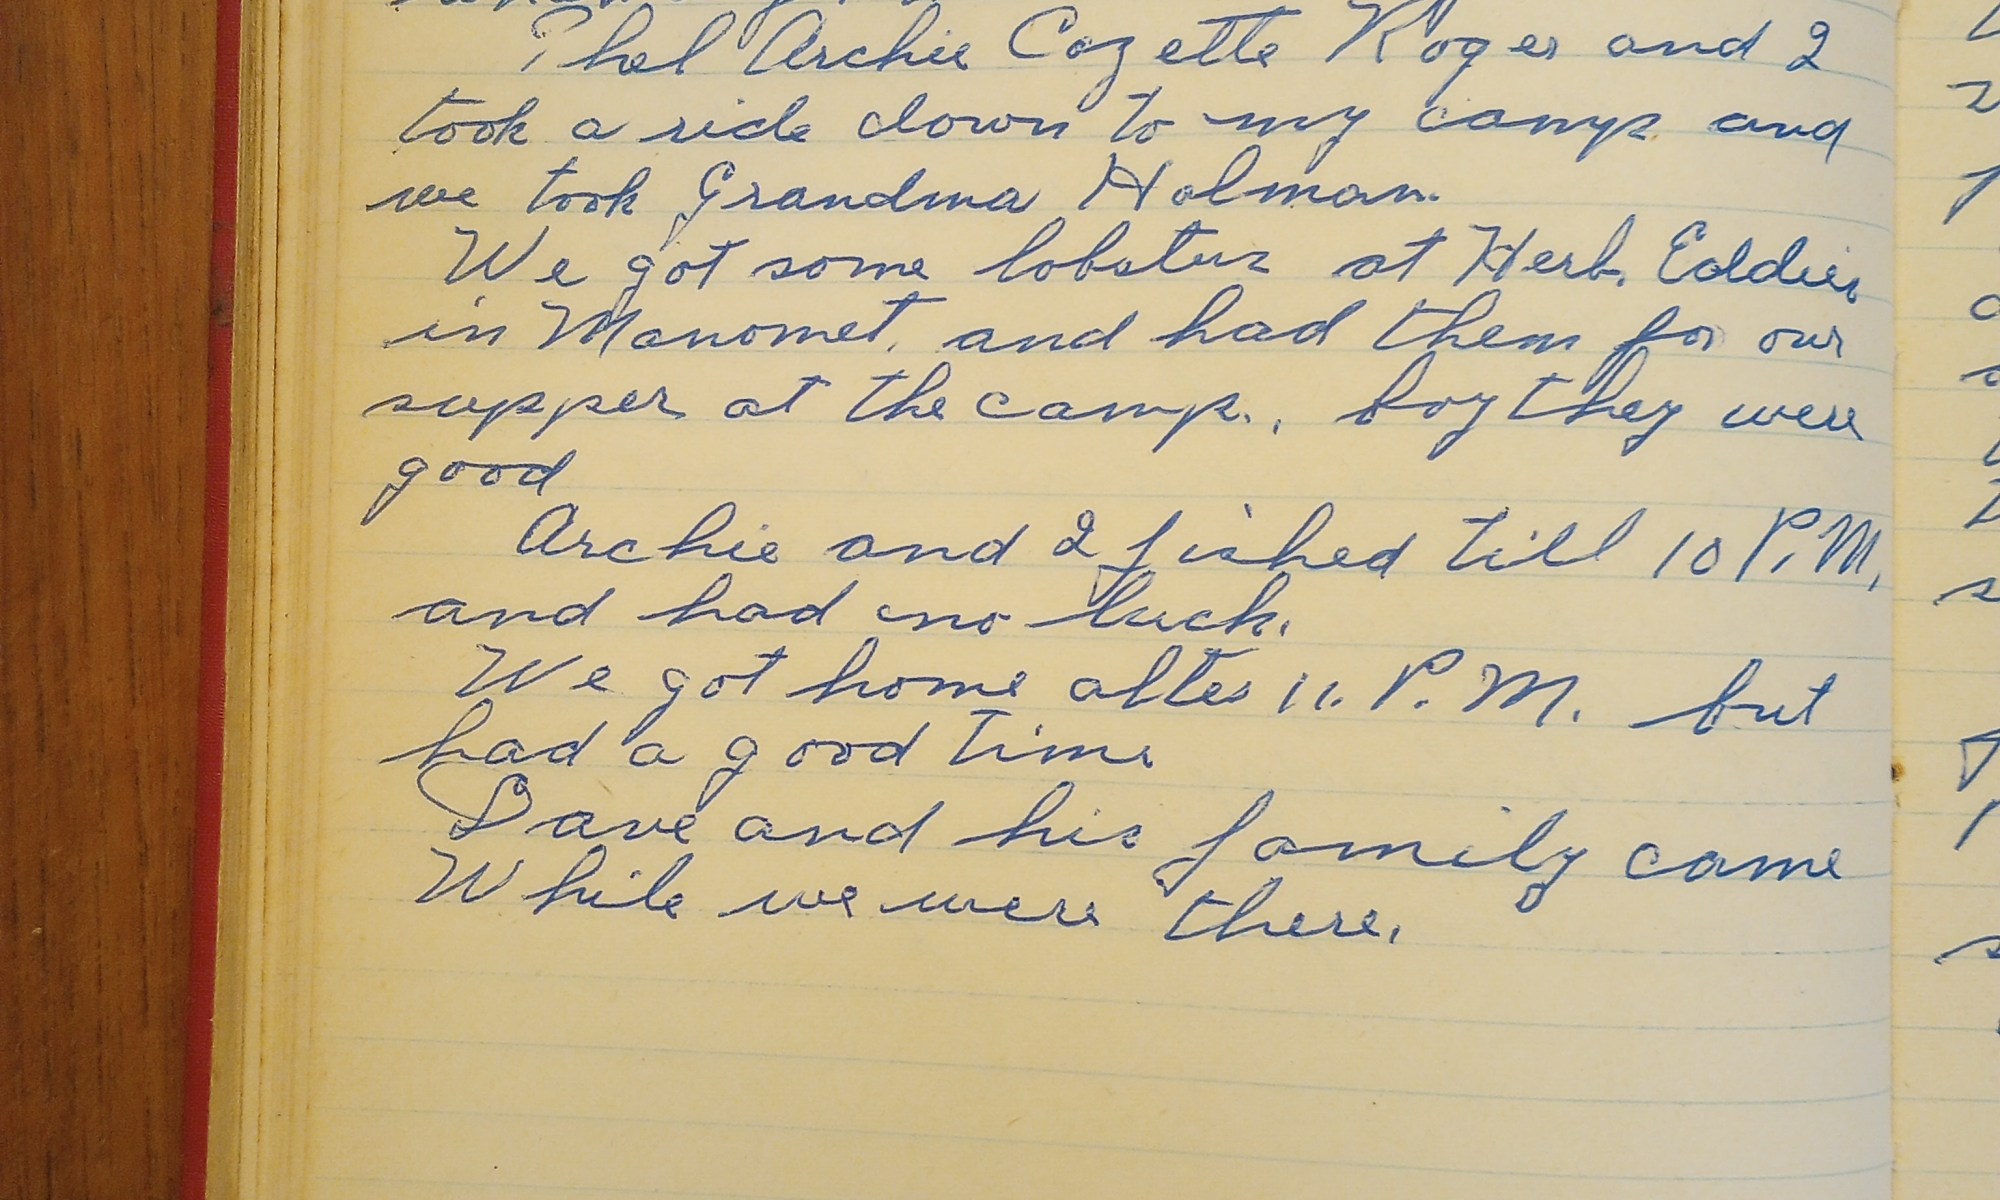 Phel Archie Cozette Roger and I
took a ride down to my camp and
we took Grandma Holman.
We got some lobsters at Herb. Eddies
in Manomet. and had them for our
supper at the camp., boy they were
good
Archie and I fished till 10 P.M.
and had no luck.
We got home after 11. P.M. but
had a good time
Dave and his family came
While we were there.